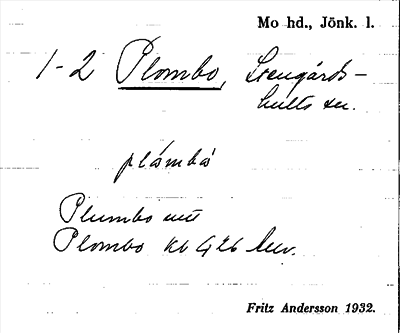 Mo hd., Jönk. l.
1-2 Plombo, Stengårds-
hults sn.
plåmbå
Plumbo
Plombo kb 4 26
Fritz Andersson 1932.